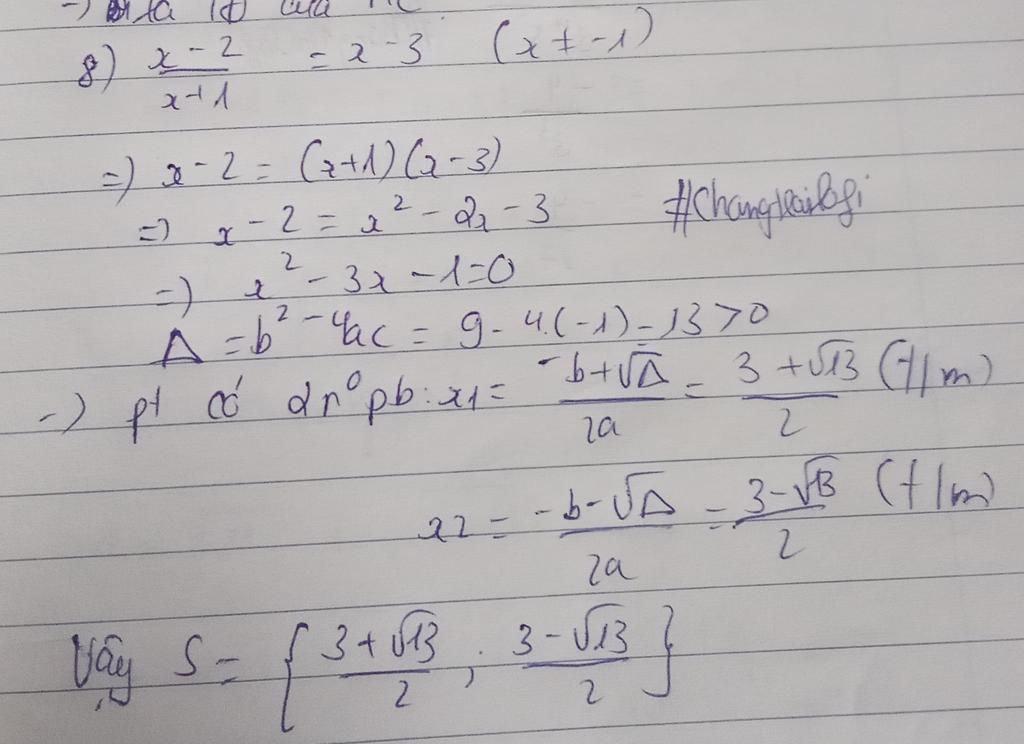 8) \frac{x-2}{x+1} = x-3 (x ≠ -1)
=) x-2 = (x+1)(x-3)
=) x-2 = x^2 - 2x - 3
=) x^2 - 3x - 1 = 0
Δ = b^2 - 4ac = 9 - 4.(-1) = 13 > 0
-) pt có 2 n^0 pb: x1 = \frac{-b+√Δ}{2a} = \frac{3+√13}{2} (t/m)
x2 = \frac{-b-√Δ}{2a} = \frac{3-√13}{2} (t/m)
Vậy S = { \frac{3+√13}{2} ; \frac{3-√13}{2} }